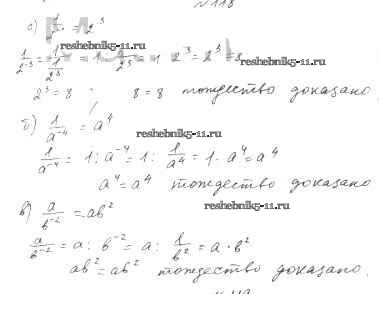 N 118
а) 1/2⁻³ = 2³
reshebnik5-11.ru
1/2⁻³ = 1/(1/2³) = 1 : 1/2³ = 1 · 2³ = 2³ = 8
reshebnik5-11.ru
2³ = 8 8 = 8 тождество доказано
б) 1/a⁻⁴ = a⁴
reshebnik5-11.ru
1/a⁻⁴ = 1 : a⁻⁴ = 1 : 1/a⁴ = 1 · a⁴ = a⁴
a⁴ = a⁴ тождество доказано
в) a/b⁻² = ab²
reshebnik5-11.ru
a/b⁻² = a : b⁻² = a : 1/b² = a · b²
ab² = ab² тождество доказано.